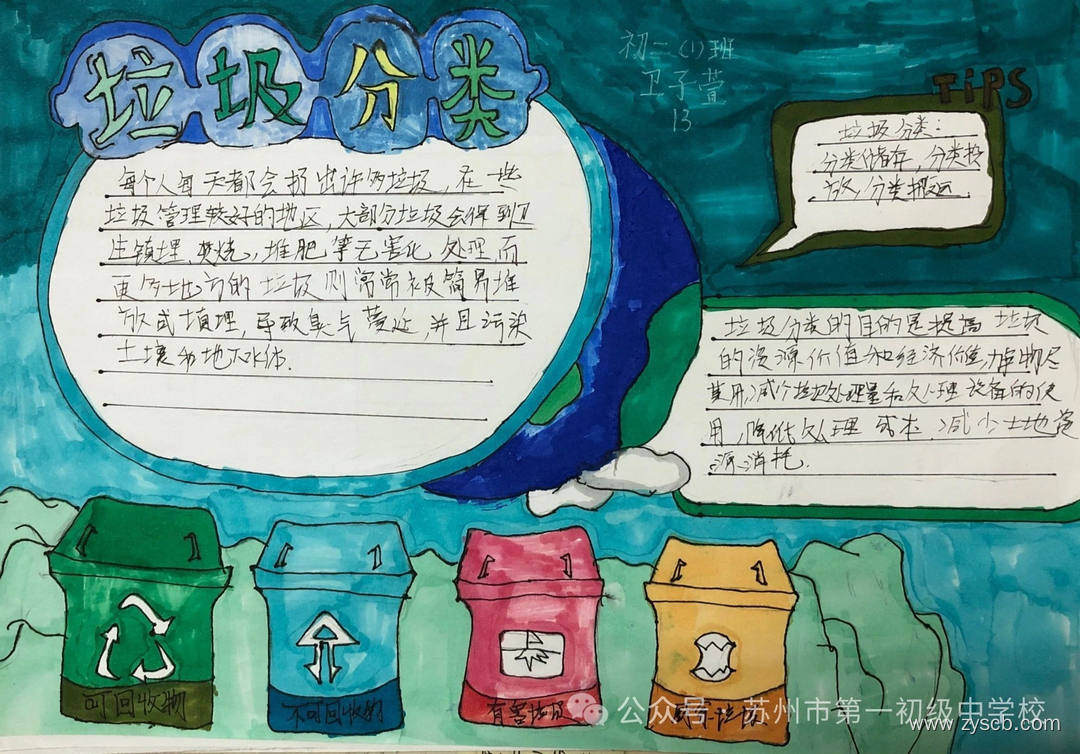 垃圾分类
初二(1)班
卫子萱
13
TiPS
垃圾分类:
分类储存,分类投
放,分类搬运
每个人每天都会扔出许多垃圾,在一些
垃圾管理较好的地区,大部分垃圾会得到卫
生填埋,焚烧,堆肥等无害化处理而
更多地方的垃圾则常常被简易堆
放或填埋,导致臭气蔓延,并且污染
土壤和地下水体.
垃圾分类的目的是提高垃圾
的资源价值和经济价值,力争物尽
其用,减少垃圾处理量和处理设备的使
用,降低处理成本,减少土地资
源消耗.
可回收物
不可回收物
有害垃圾
公众号·苏州市第一初级中学校
www.zyscb.com